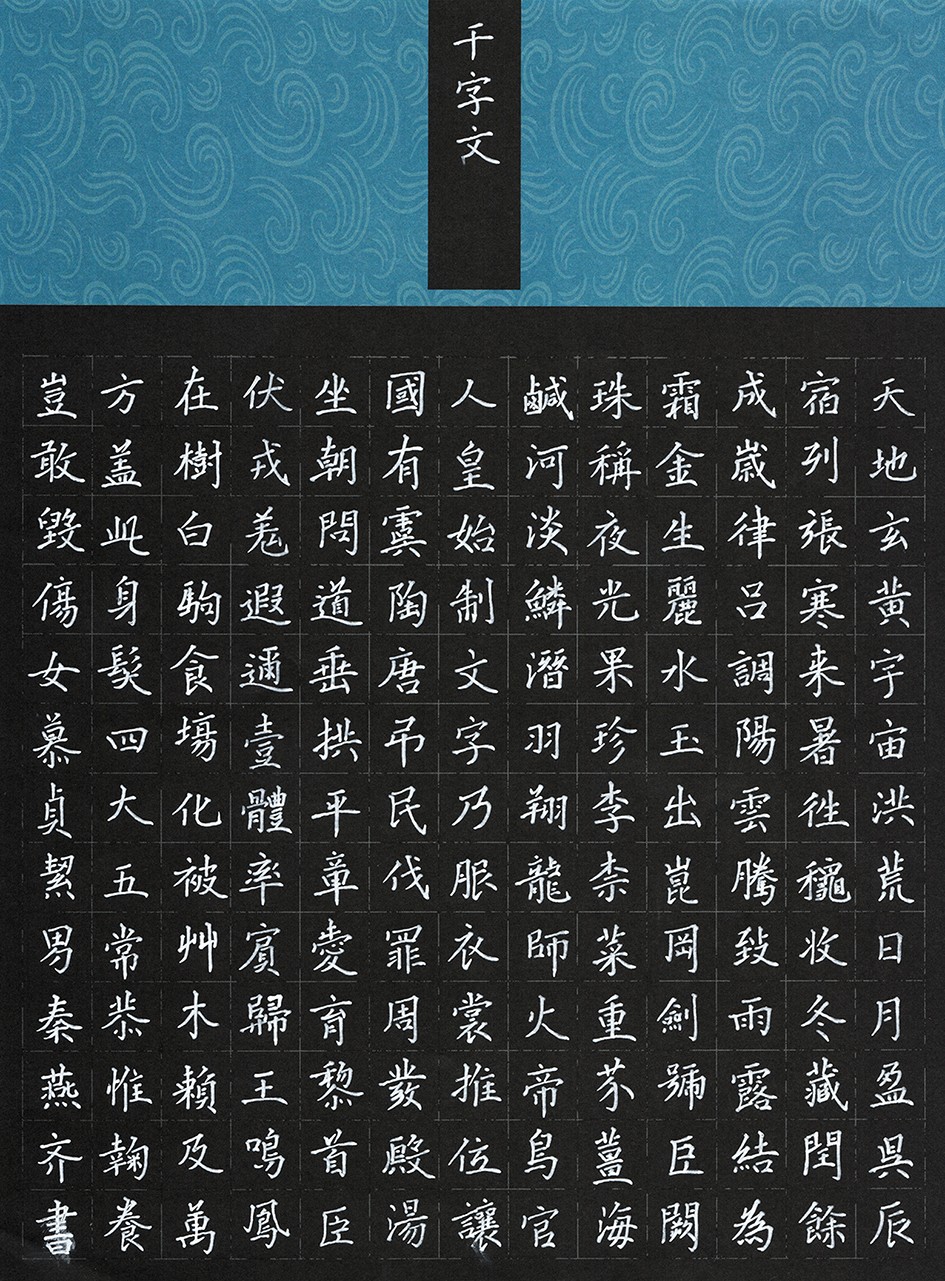 千字文
天地玄黃宇宙洪荒日月盈昃辰
宿列張寒来暑徃穐收冬藏閏餘
成歲律呂調陽雲騰致雨露結為
霜金生麗水玉出崑岡劍號巨闕
珠稱夜光果珍李柰菜重芥薑海
鹹河淡鱗潛羽翔龍師火帝鳥官
人皇始制文字乃服衣裳推位讓
國有虞陶唐弔民伐罪周發殷湯
坐朝問道垂拱平章愛育黎首臣
伏戎羌遐邇壹體率賓歸王鳴鳳
在樹白駒食場化被艸木賴及萬
方盖此身髮四大五常恭惟鞠養
豈敢毀傷女慕貞絜男秦燕齐書